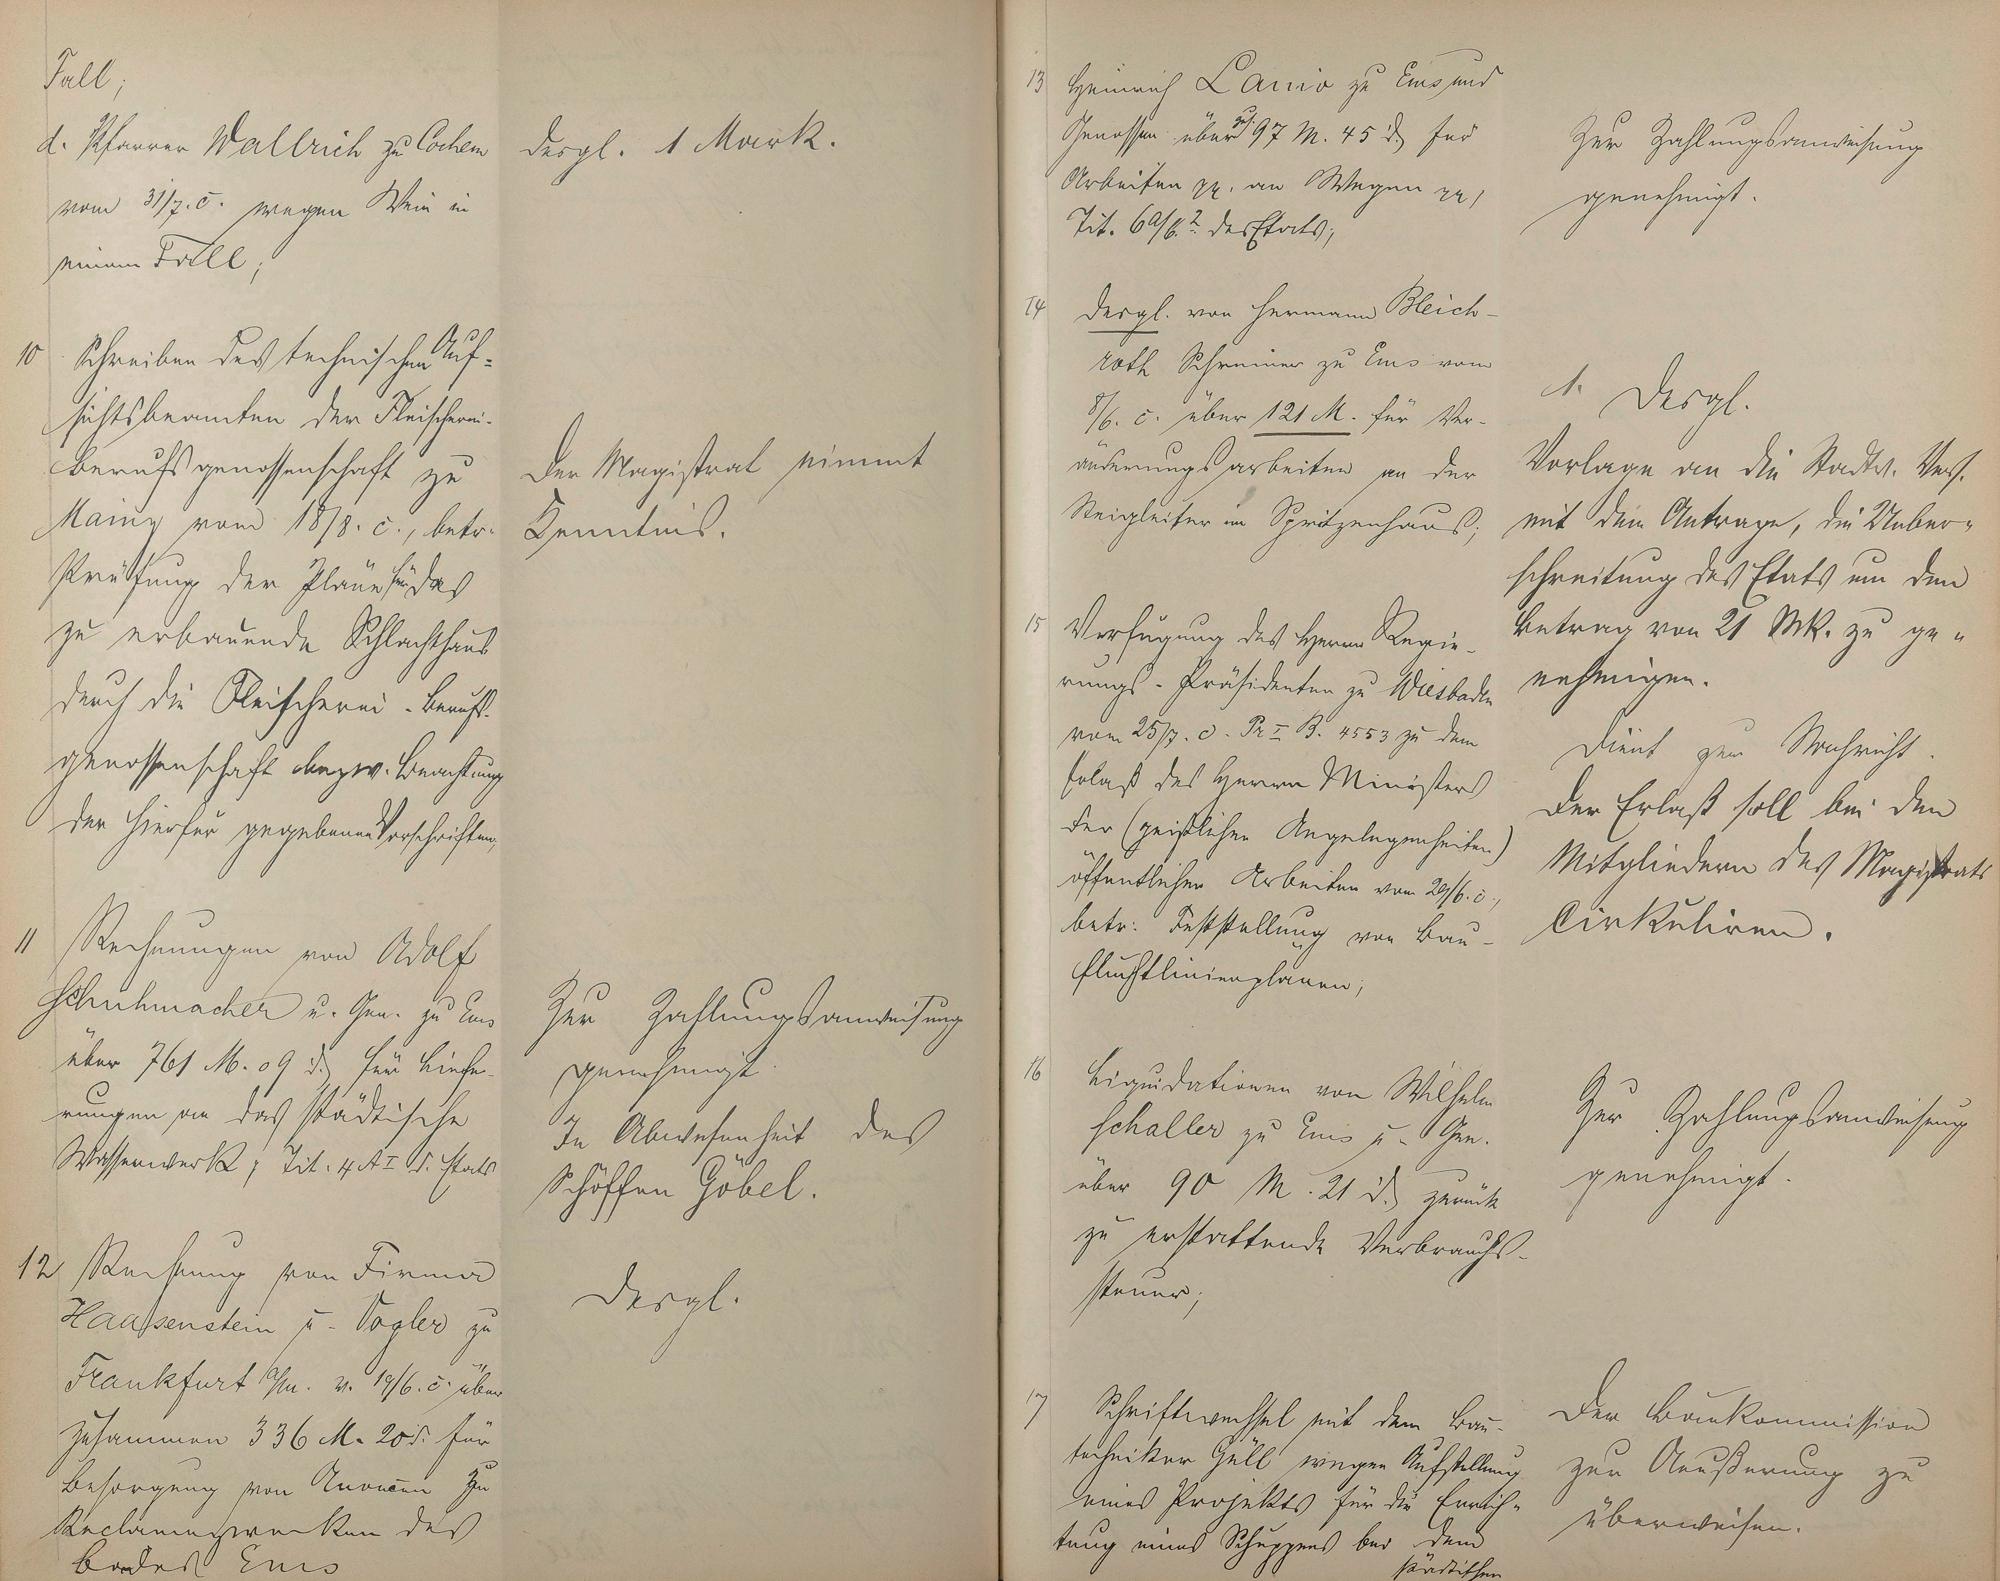 Fall;
d. Pfarrer Wallrich zu Cochem
vom 31/7. c. wegen Wein in
einem Fall;
desgl. 1 Mark.
10 Schreiben des technischen Auf-
sichtsbeamten der Fleischerei-
berufsgenossenschaft zu
Mainz vom 18/8. c., betr.
Prüfung der Pläne für das
zu erbauende Schlachthaus
durch die Fleischerei-Berufs-
genossenschaft bezw. Beachtung
der hierfür gegebenen Vorschriften;
Der Magistrat nimmt
Kenntnis.
11 Rechnungen von Adolf
Schuhmacher u. Gen. zu Ems
über 761 M. 09 d. für Liefe-
rungen an das städtische
Wasserwerk, Tit. 4 A I d. Etats
Zur Zahlungsanweisung
genehmigt.
In Abwesenheit des
Schöffen Göbel.
12 Rechnung von Firma
Haasenstein u. Vogler zu
Frankfurt a/m. v. 19/6. c. über
zusammen 336 M. 20 d. für
Besorgung von Anoncen zu
Reclamezwecken des
Bades Ems
desgl.
13 Heinrich Lanio zu Ems und
Genossen über zus. 97 M. 45 d. für
Arbeiten pp. an Wegen pp,
Tit. 6a/b. 2 des Etats;
Zur Zahlungsanweisung
genehmigt.
14 desgl. von Hermann Bleich-
roth Schreiner zu Ems vom
8/6. c. über 121 M. für Ver-
änderungsarbeiten an der
Steigleiter im Spritzenhaus;
1. Desgl.
Vorlage an die Stadtv. Vers.
mit dem Antrage, die Ueber-
schreitung des Etats um den
Betrag von 21 Mk. zu ge-
nehmigen.
15 Verfügung des Herrn Regie-
rungs-Präsidenten zu Wiesbaden
vom 25/7. c. Pr I B. 4553 zu dem
Erlaß des Herrn Ministers
der (geistlichen Angelegenheiten)
öffentlichen Arbeiten vom 29/6. c.,
betr. Feststellung von Bau-
fluchtlinienplänen;
Dient zur Nachricht.
Der Erlaß soll bei den
Mitgliedern des Magistrats
Cirkuliren.
16 Liquidationen von Wilhelm
Schaller zu Ems u. Gen.
über 90 M. 21 d. zurück
zu erstattende Verbrauchs-
steuer;
Zur Zahlungsanweisung
genehmigt.
17 Schriftwechsel mit dem Bau-
techniker Güll wegen Aufstellung
eines Projekts für die Errich-
tung eines Schuppens bei dem
städtischen
Der Baukommission
zur Aeußerung zu
überweisen.